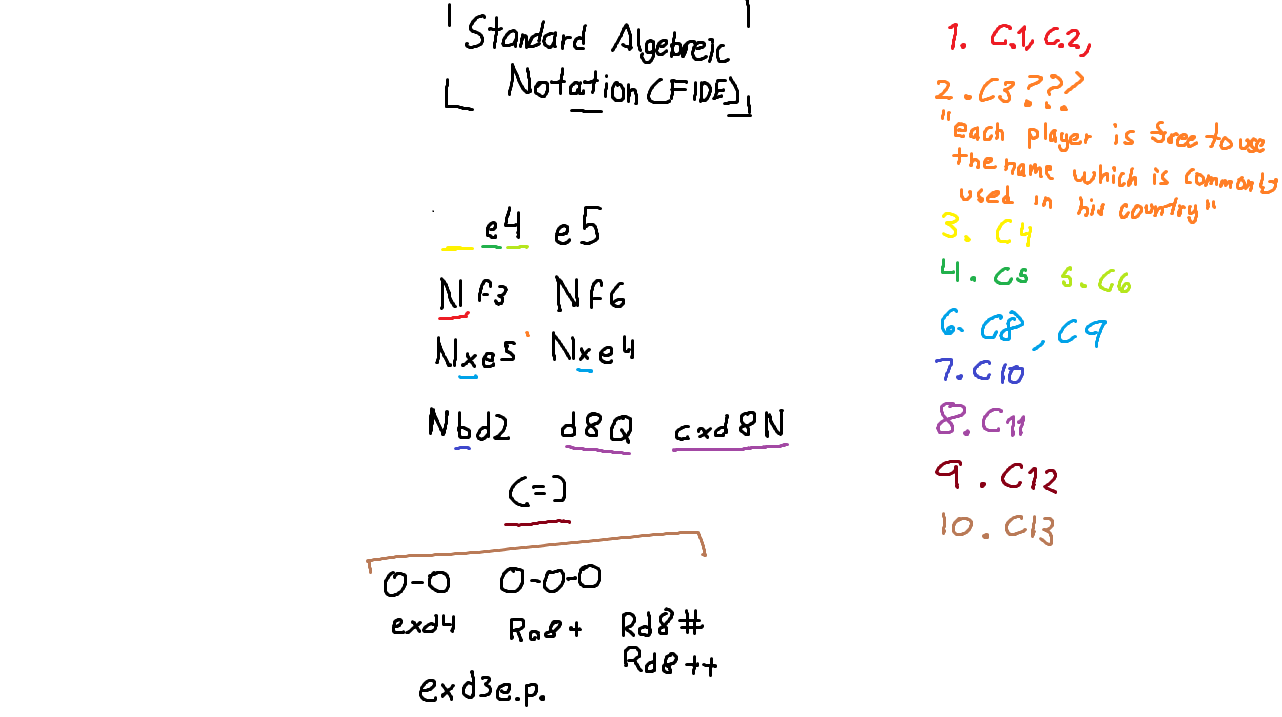 Standard Algebreic
Notation (FIDE)
e4 e5
Nf3 Nf6
Nxe5 Nxe4
Nbd2 d8Q cxd8N
(=)
O-O O-O-O
exd4 Ra8+ Rd8#
Rd8++
exd3e.p.
1. C.1, C.2,
2. C3???
"each player is free to use
the name which is commonly
used in his country"
3. C4
4. C5 5. C6
6. C8, C9
7. C10
8. C11
9. C12
10. C13